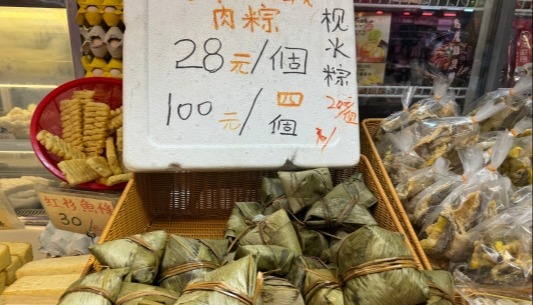 肉粽
28元/個
100元/四個
枧水粽
红衫魚條
30/